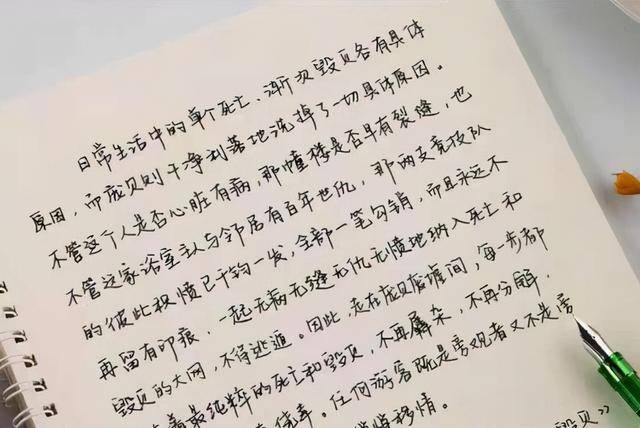 日常生活中的单个死亡、渐次毁灭各有具体
原因,而庞贝则干净利落地洗掉了一切具体原因。
不管这个人是否心脏有病,那幢楼是否早有裂缝,也
不管这家浴室主人与邻居有百年世仇,那两支竞技队
的彼此积愤已千钧一发,全部一笔勾销,而且永远不
再留有印痕,一起无病无缝无仇无愤地纳入死亡和
毁灭的大网,不得逃遁。因此,走在庞贝废墟间,每一步都
着最纯粹的死亡和毁灭,不再羼杂,不再分解,
侥幸。任何游客既是旁观者又不是旁
悄移情。